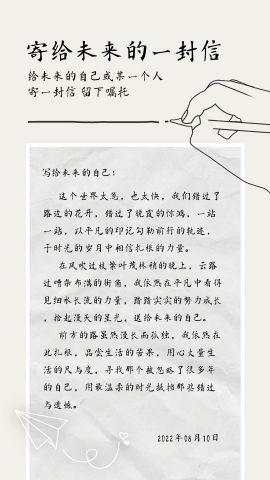 寄给未来的一封信
给未来的自己或某一个人
寄一封信 留下嘱托
写给未来的自己：
这个世界太忽，也太快，我们错过了
路边的花开，错过了晚霞的惊鸿，一站
一站，以平凡的印记勾勒前行的轨迹，
于时光的岁月中相信扎根的力量。
在风吹过枝繁叶茂林梢的晚上，云路
过嘈杂布满的街角，我依然在平凡中看得
见细水长流的力量，踏踏实实的努力成长
，拾起漫天的星光，送给未来的自己。
前方的路虽然漫长而孤独，我依然在
此扎根，品尝生活的苦果，用心丈量生
活的尺与度，寻找那个被忽略了很多年
的自己，用最温柔的时光拥抱那些错过
与遗憾。
2022年08月10日